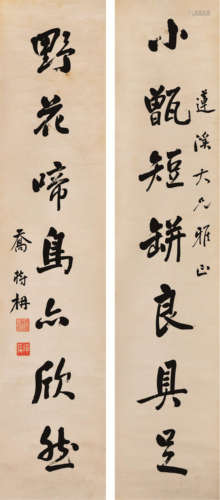 小甑短缾良具足
蓮溪大兄雅正
野花啼鳥亦欣然